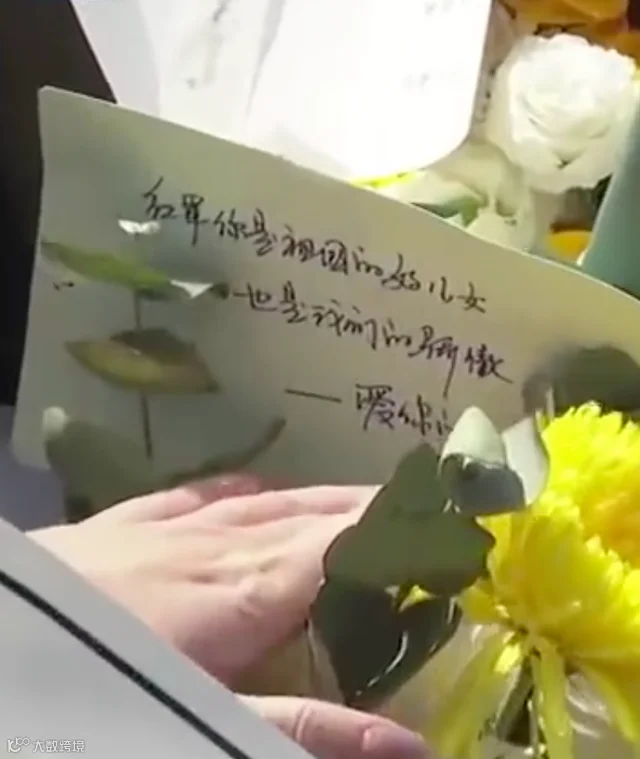 你是祖国的好儿女
也是我们的骄傲
——爱你的
大数跨境